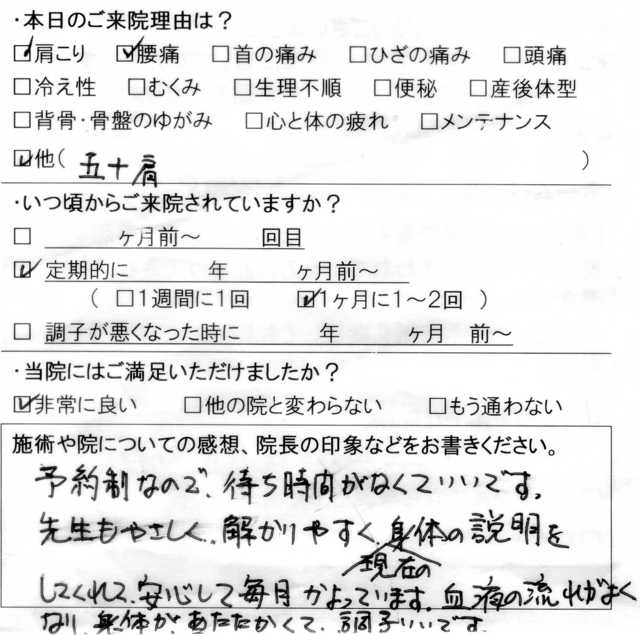 ・本日のご来院理由は？
☑肩こり ☑腰痛 □首の痛み □ひざの痛み □頭痛
□冷え性 □むくみ □生理不順 □便秘 □産後体型
□背骨・骨盤のゆがみ □心と体の疲れ □メンテナンス
☑他( 五十肩 )
・いつ頃からご来院されていますか？
□ ヶ月前～ 回目
☑ 定期的に 年 ヶ月前～
( □1週間に1回 ☑1ヶ月に1～2回 )
□ 調子が悪くなった時に 年 ヶ月 前～
・当院にはご満足いただけましたか？
☑非常に良い □他の院と変わらない □もう通わない
施術や院についての感想、院長の印象などをお書きください。
予約制なので、待ち時間がなくていいです。
先生もやさしく、解かりやすく、現在の身体の説明を
してくれて、安心して毎月かよっています。血液の流れがよく
なり、身体があたたかくて、調子いいです。